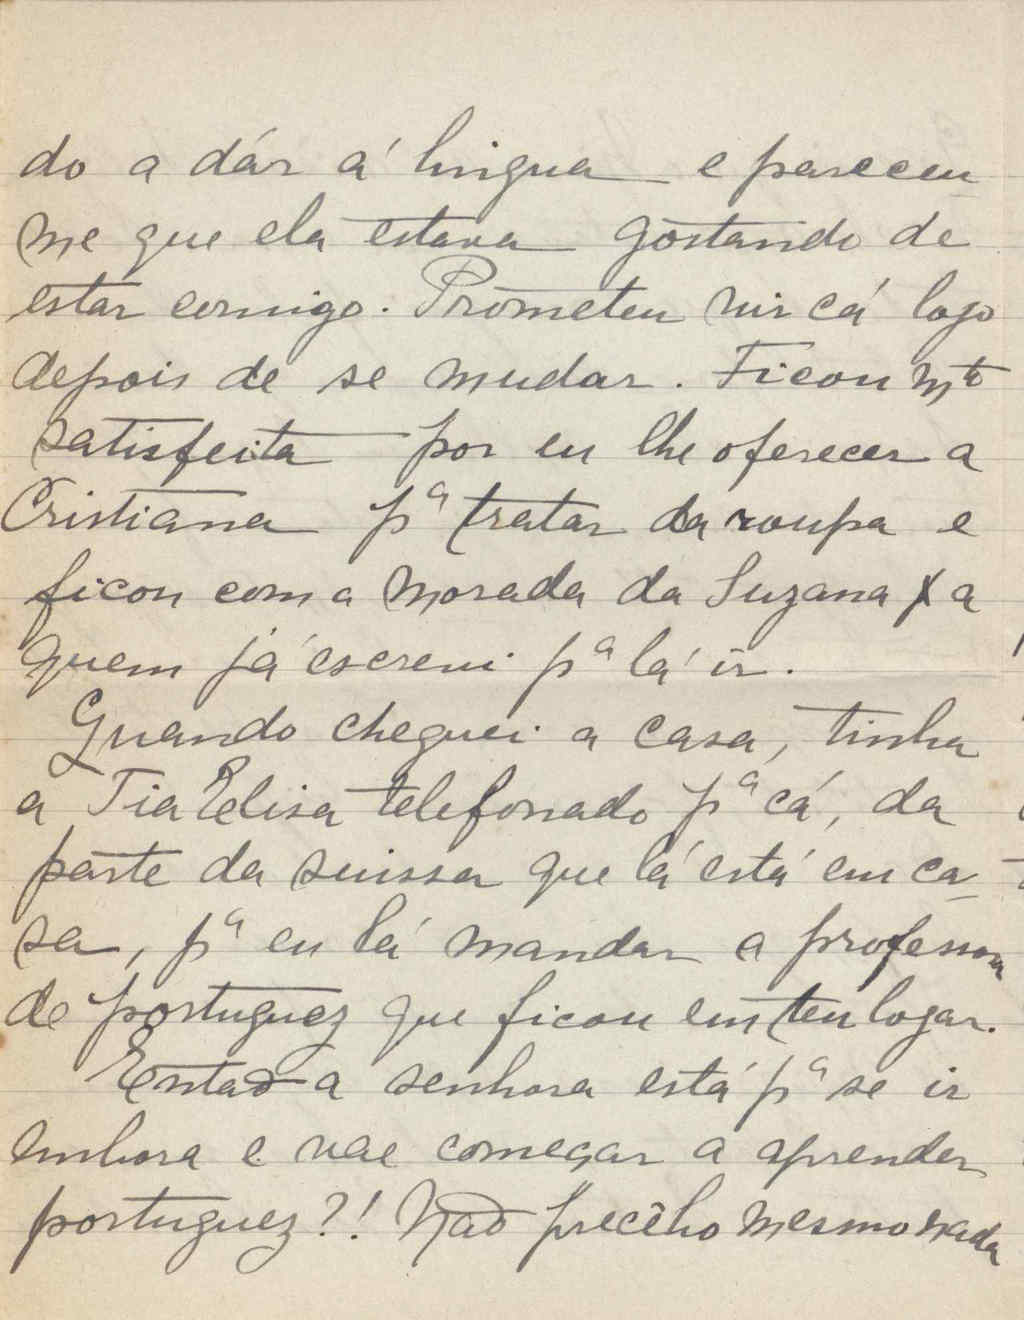 do a dár á lingua e pareceu
me que ela estava gostando de
estar comigo. Prometeu vir cá logo
depois de se mudar. Ficou mto
satisfeita por eu lhe oferecer a
Cristiana pa tratar da roupa e
ficou com a morada da Suzana a
quem já escrevi pa lá ir.
Quando cheguei a casa, tinha
a Tia Elisa telefonado pa cá, da
parte da suissa que lá está em ca
sa, pa eu lá mandar a professora
de portuguez que ficou em teu logar.
Entao a senhora está pa se ir
embora e vae começar a aprender
portuguez?! Nao precêbo mesmo nada